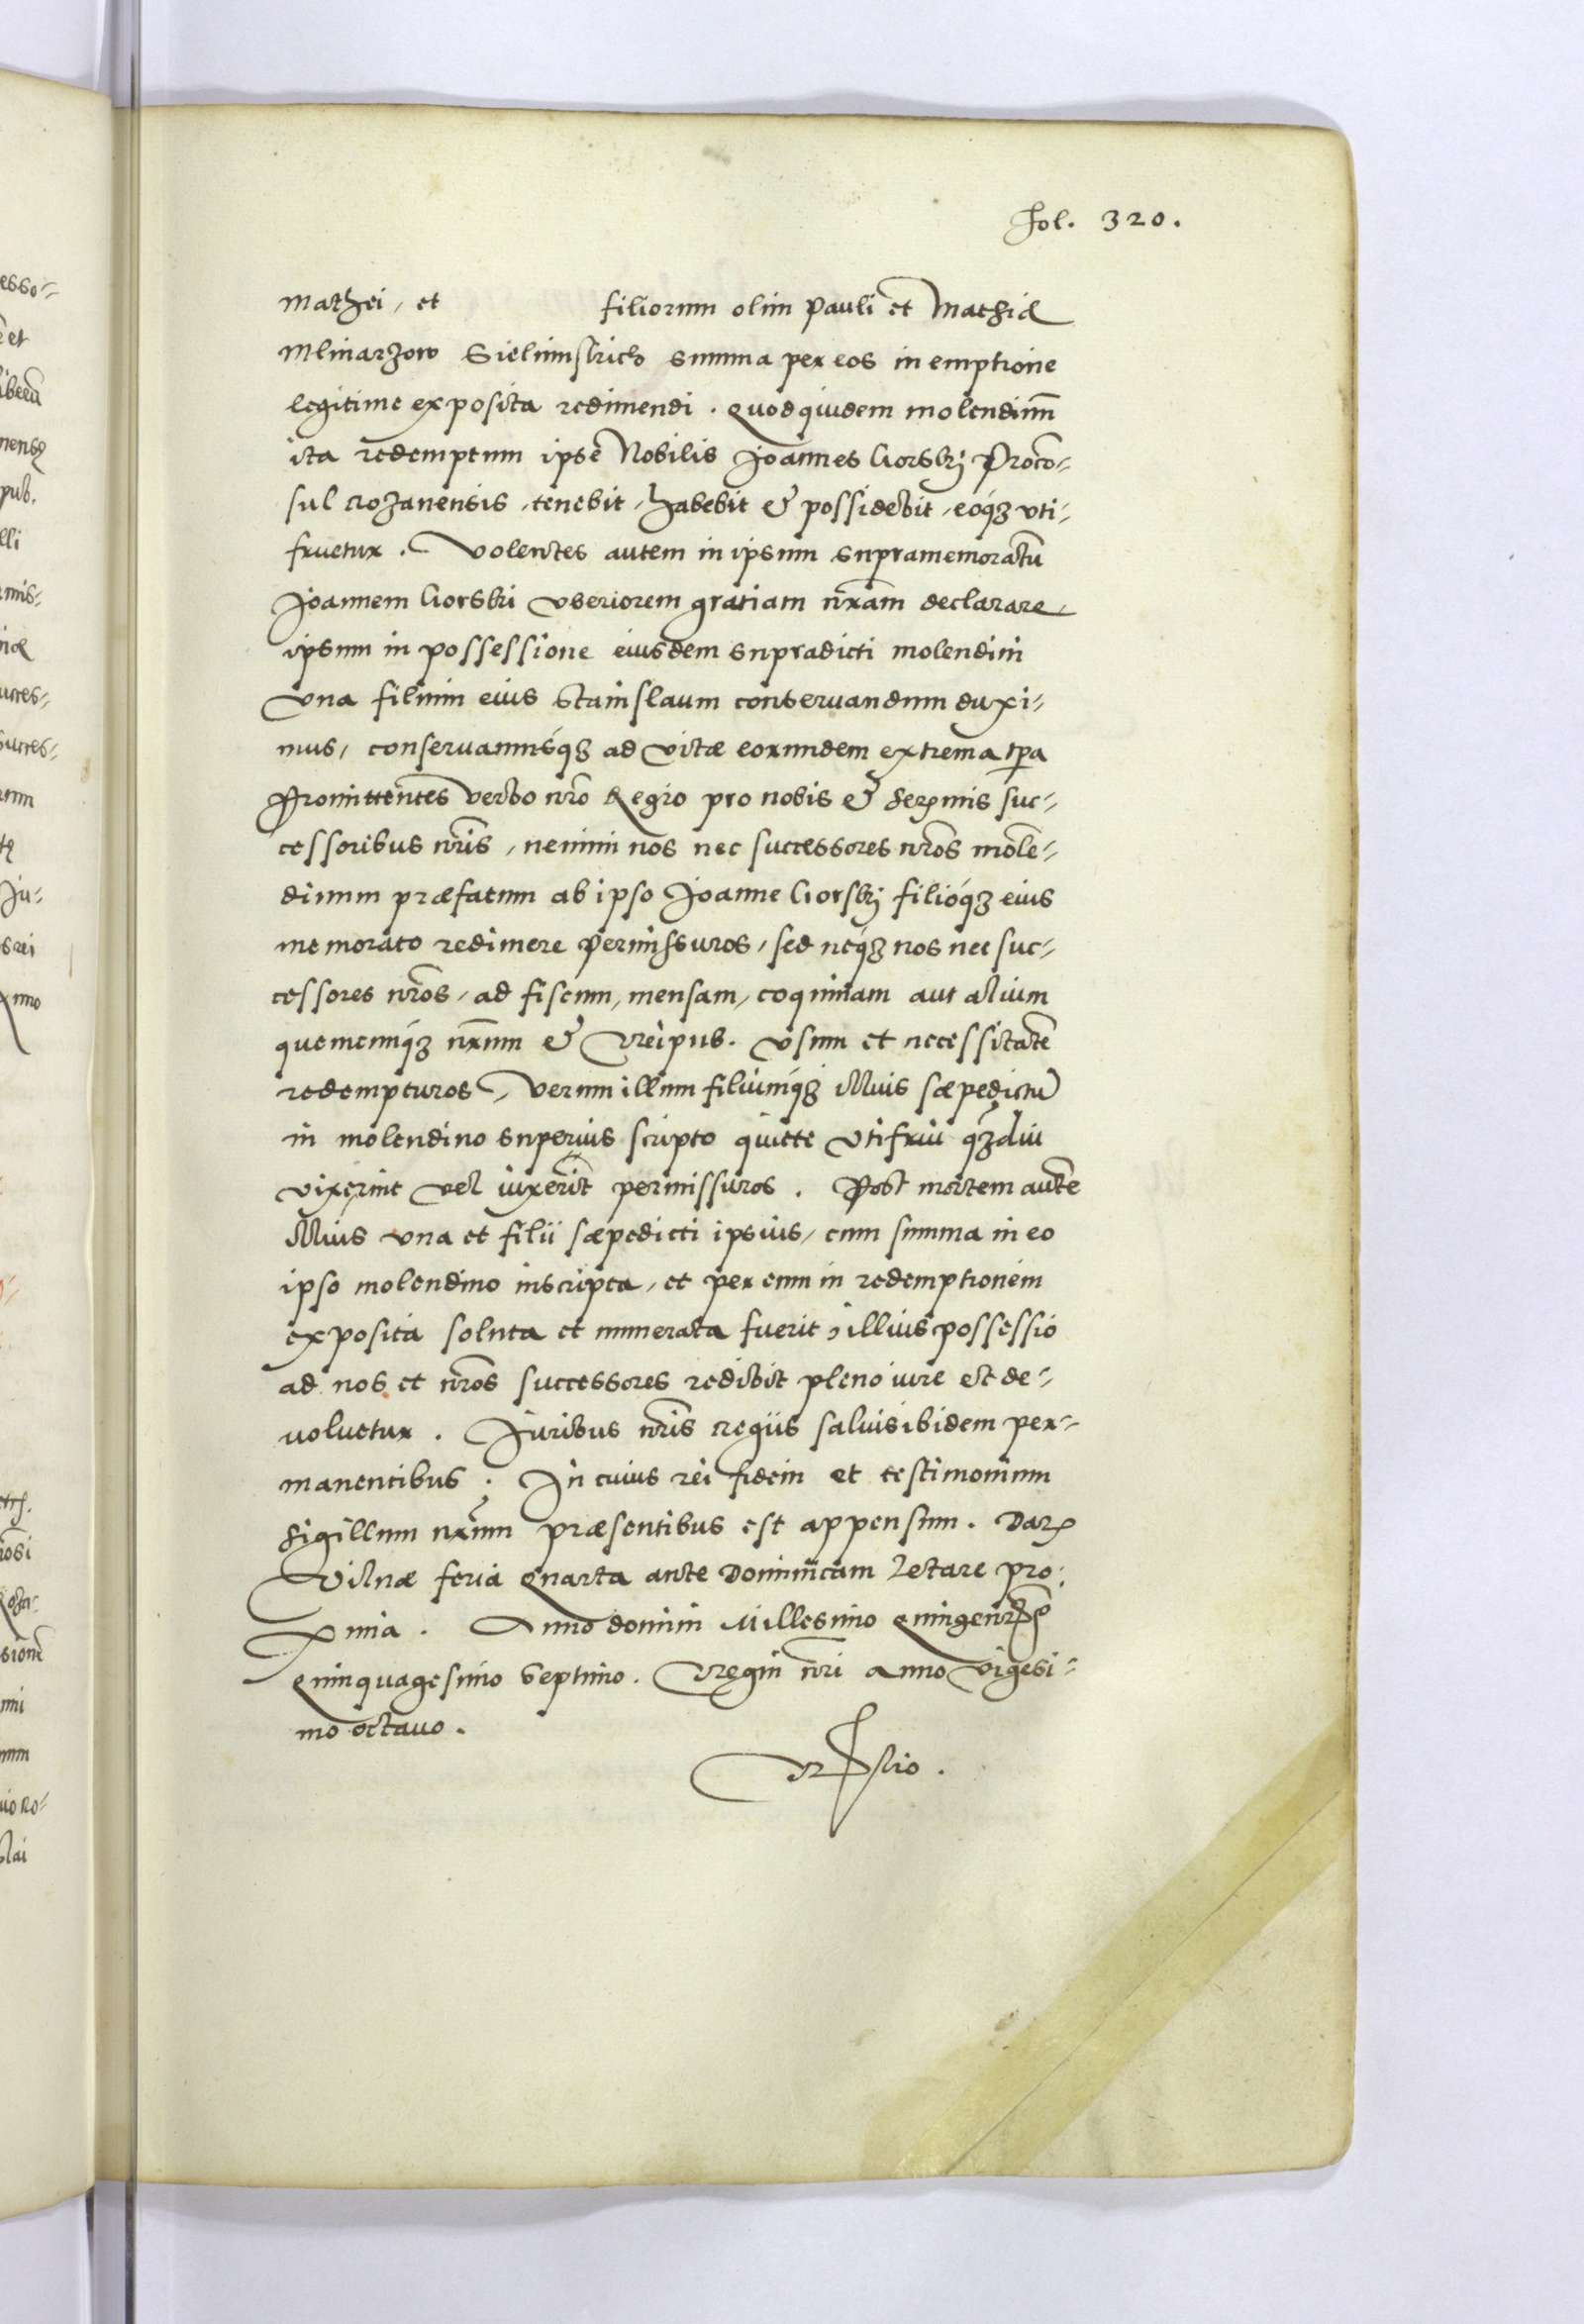 Fol. 320.
Mathei, et filiorum olim Pauli et Mathiæ
Mlinarzow Sielunstrich summa per eos in emptione
legitime exposita redimendi. Quod quidem molendinū
ita redemptum ipse Nobilis Joannes Gorski Proco-
sul Rozanensis, tenebit, habebit & possidebit, eoqꝫ uti-
fruetur. Volentes autem in ipsum supramemoratū
Joannem Gorski uberiorem gratiam nr̄am declarare,
ipsum in possessione eiusdem supradicti molendini
una filium eius Stanislaum conservandum duxi-
mus, conservamusqꝫ ad vitæ eorundem extrema tp̄a
Promittentes verbo nr̄o Regio pro nobis & Serꝫmis suc-
cessoribus nr̄is, nemini nos nec successores nr̄os molē-
dinum præfatum ab ipso Joanne Gorskj filioqꝫ eius
memorato redimere permissuros, sed neqꝫ nos nec suc-
cessores nr̄os, ad fiscum, mensam, coquinam aut alium
quemcunqꝫ nr̄um & Reipub. usum et necessitatē
redempturos, verum illum filiumqꝫ illius sæpedictū
in molendino superius scripto quiete utifrui qꝫdiu
vixerint vel vixerit permissuros. Post mortem autē
illius una et filii sæpedicti ipsius, cum summa in eo
ipso molendino inscripta, et per eum in redemptionem
exposita soluta et numerata fuerit, illius possessio
ad nos et nr̄os successores redibit pleno iure et de-
voluetur. Juribus nr̄is regiis salvis ibidem per-
manentibus. In cuius rei fidem et testimonium
Sigillum nr̄um præsentibus est appensum. Datꝫ
Vilnæ feria quarta ante Dominicam Letare pro-
xima. Anno domini Millesimo quingenᵐᵒ
quinquagesimo Septimo. Regni nr̄i anno vigesi-
mo octauo.